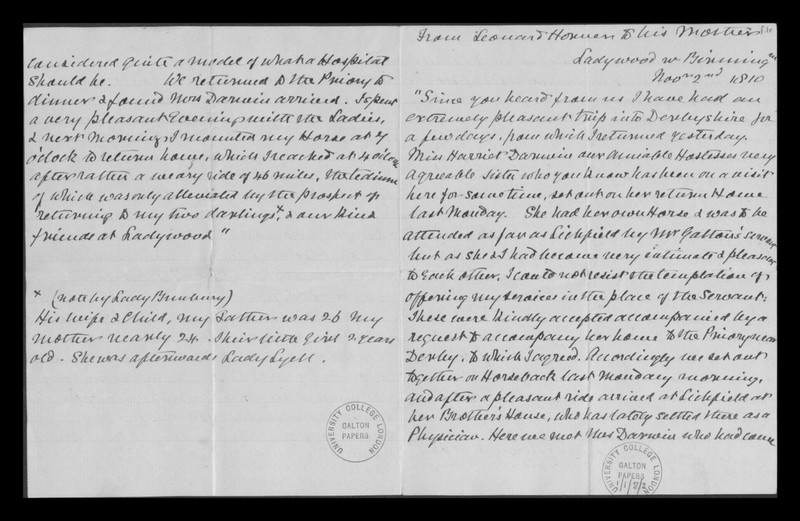 From Leonard Horner to his Mother
Ladywood nr Birmingm
Novr 2nd 1810
"Since you heard from us I have had an
extremely pleasant trip into Derbyshire for
a few days, from which I returned yesterday.
Miss Harriot Darwin our amiable Hostesses very
agreable sister who you know has been on a visit
here for sometime, set out on her return Home
last Monday. She had her own Horse & was to be
attended as far as Lichfield by Mr Galton's servant
but as she & I had become very intimate & pleasant
to each other, I could not resist the temptation of
offering my services in the place of the Servant.
These were kindly accepted accompanied by a
request to accompany her home to the Priory near
Derby, to which I agreed. Accordingly we set out
together on Horseback last Monday morning,
and after a pleasant ride arrived at Lichfield at
her Brother's House, who has lately settled there as a
Physician. Here we met Mrs Darwin who had come
UNIVERSITY COLLEGE LONDON
GALTON
PAPERS
1/1/8/2
considered quite a model of what a Hospital
should be. We returned to the Priory to
dinner & found Mrs Darwin arrived. I spent
a very pleasant Evening with the Ladies,
& next Morning I mounted my Horse at 7
o'clock to return home, which I reached at 4 o'clock
after rather a weary ride of 46 miles, the tedium
of which was only alleviated by the prospect of
returning to my two darlings x, & our kind
friends at Ladywood"
x (note by Lady Bunbury)
His wife & Child, my Father was 26 my
Mother nearly 24. Their little Girl 2 years
old. She was afterwards Lady Lyell.
UNIVERSITY COLLEGE LONDON
GALTON
PAPERS